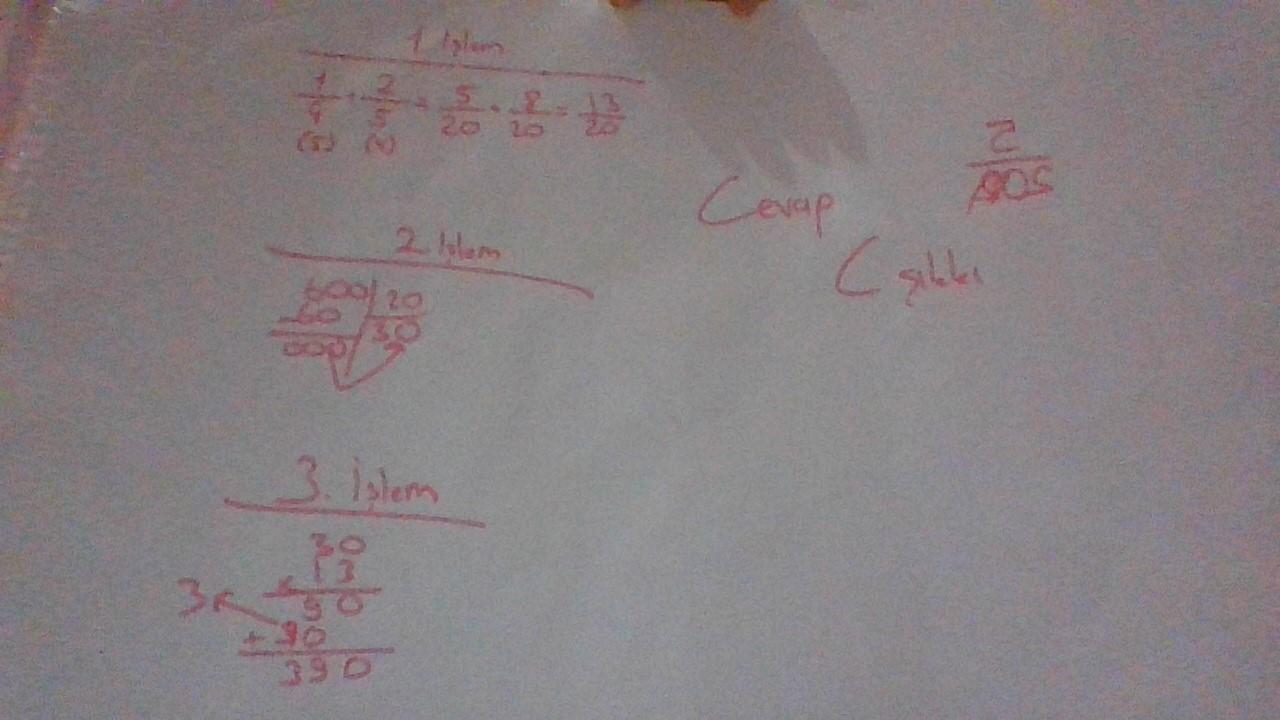 1 İşlem
1/4 + 2/5 = 5/20 + 8/20 = 13/20
(5) (4)
2 İşlem
600 | 20
- 60 | 30
000
3. İşlem
30
x 13
90
3
+ 30
390
Cevap
C şıkkı